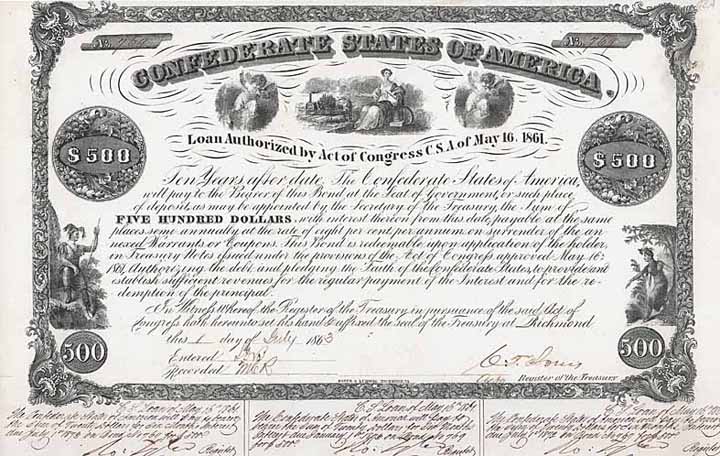 No. 769
No. 769
CONFEDERATE STATES OF AMERICA
Loan Authorized by Act of Congress C S A of May 16. 1861.
$500
$500
Ten Years after date, The Confederate States of America,
will pay to the Bearer of this Bond at the Seat of Government, or such place
of deposit, as may be appointed by the Secretary of the Treasury the Sum of
FIVE HUNDRED DOLLARS, with interest thereon from this date, payable at the same
places semi annually at the rate of eight per cent per annum on surrender of the an
nexed Warrants or Coupons. This Bond is redeemable upon application of the holder,
in Treasury Notes issued under the provisions of the Act of Congress approved May 16:
1861, Authorizing the debt, and pledging the Faith of the Confederate States, to provide and
establish sufficient revenues for the regular payment of the Interest and for the re-
demption of the principal.
In Witness Whereof the Register of the Treasury in pursuance of the said Act of
Congress hath hereunto set his hand & affixed the seal of the Treasury at Richmond
this 1 day of July 1863
Entered
Recorded
Register of the Treasury
500
500
C. S. Loan of May 16th 1861
The Confederate States of America
the Sum of Twenty Dollars for Six Months Interest
due July 1st 1873 on Bond No 769 for $500
Register
C. S. Loan of May 16th 1861
The Confederate States of America
the Sum of Twenty Dollars for Six Months
Interest due January 1st on Bond No 769
for $500
Register
C. S. Loan of May 16th 1861
The Confederate States of America
the Sum of Twenty Dollars for Six Months Interest
due July 1st 1872 on Bond No 769 for $500
Register